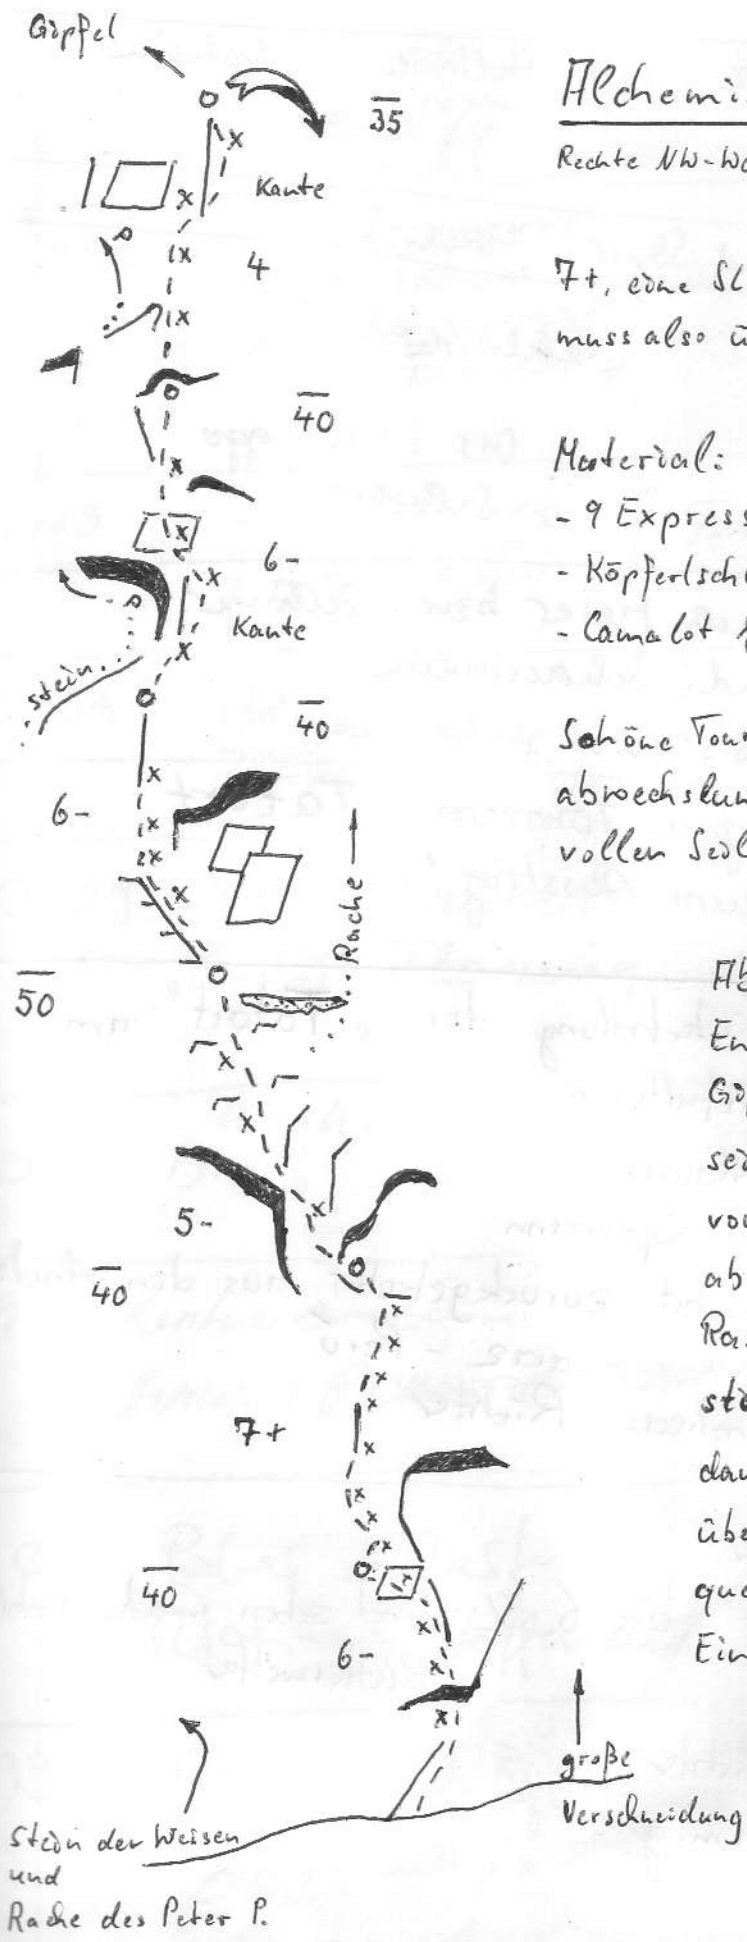 Göpfel
35
Kante
4
40
6-
Kante
stein
40
6-
Rache
50
5-
40
7+
40
6-
große
Verschneidung
Stein der Weisen
und
Rache des Peter P.
Alchemi
Rechte NW-Wa
7+, eine SL
muss also ü
Material:
- 9 Express
- Köpferlsch
- Camalot
Schöne Tour
abwechslun
vollen Seil
Ab
En
Gö
sei
vou
ab
Ras
ste
dau
übe
que
Ein